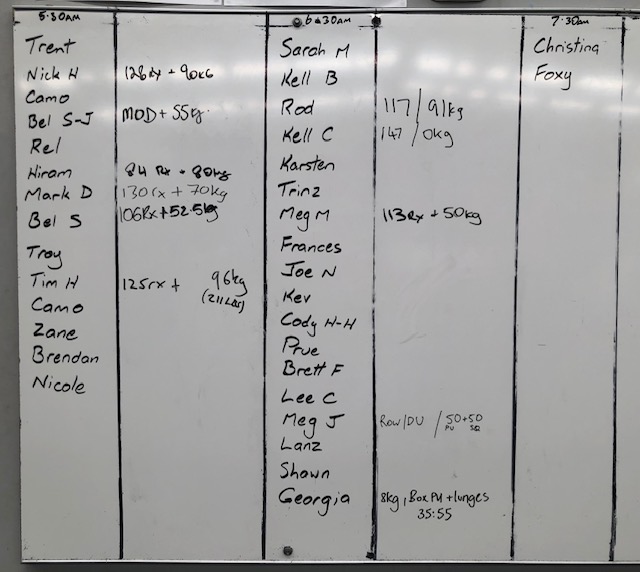 5:30AM
Trent
Nick H 128rx + 90KG
Camo
Bel S-J MOD + 55kg.
Rel
Hiram 84 Rx + 80kg
Mark D 130rx + 70kg
Bel S 106Rx + 52.5kg
Troy
Tim H 125rx + 96kg
(211Lbs)
Camo
Zane
Brendan
Nicole
6:30AM
Sarah M
Kell B
Rod 117 / 91kg
Kell C 147 / 0kg
Karsten
Trinz
Meg M 113Rx + 50kg
Frances
Joe N
Kev
Cody H-H
Prue
Brett F
Lee C
Meg J Row/DU / 50+50
PU SQ
Lanz
Shawn
Georgia 8kg, Box PU + lunges
35:55
7:30am
Christina
Foxy